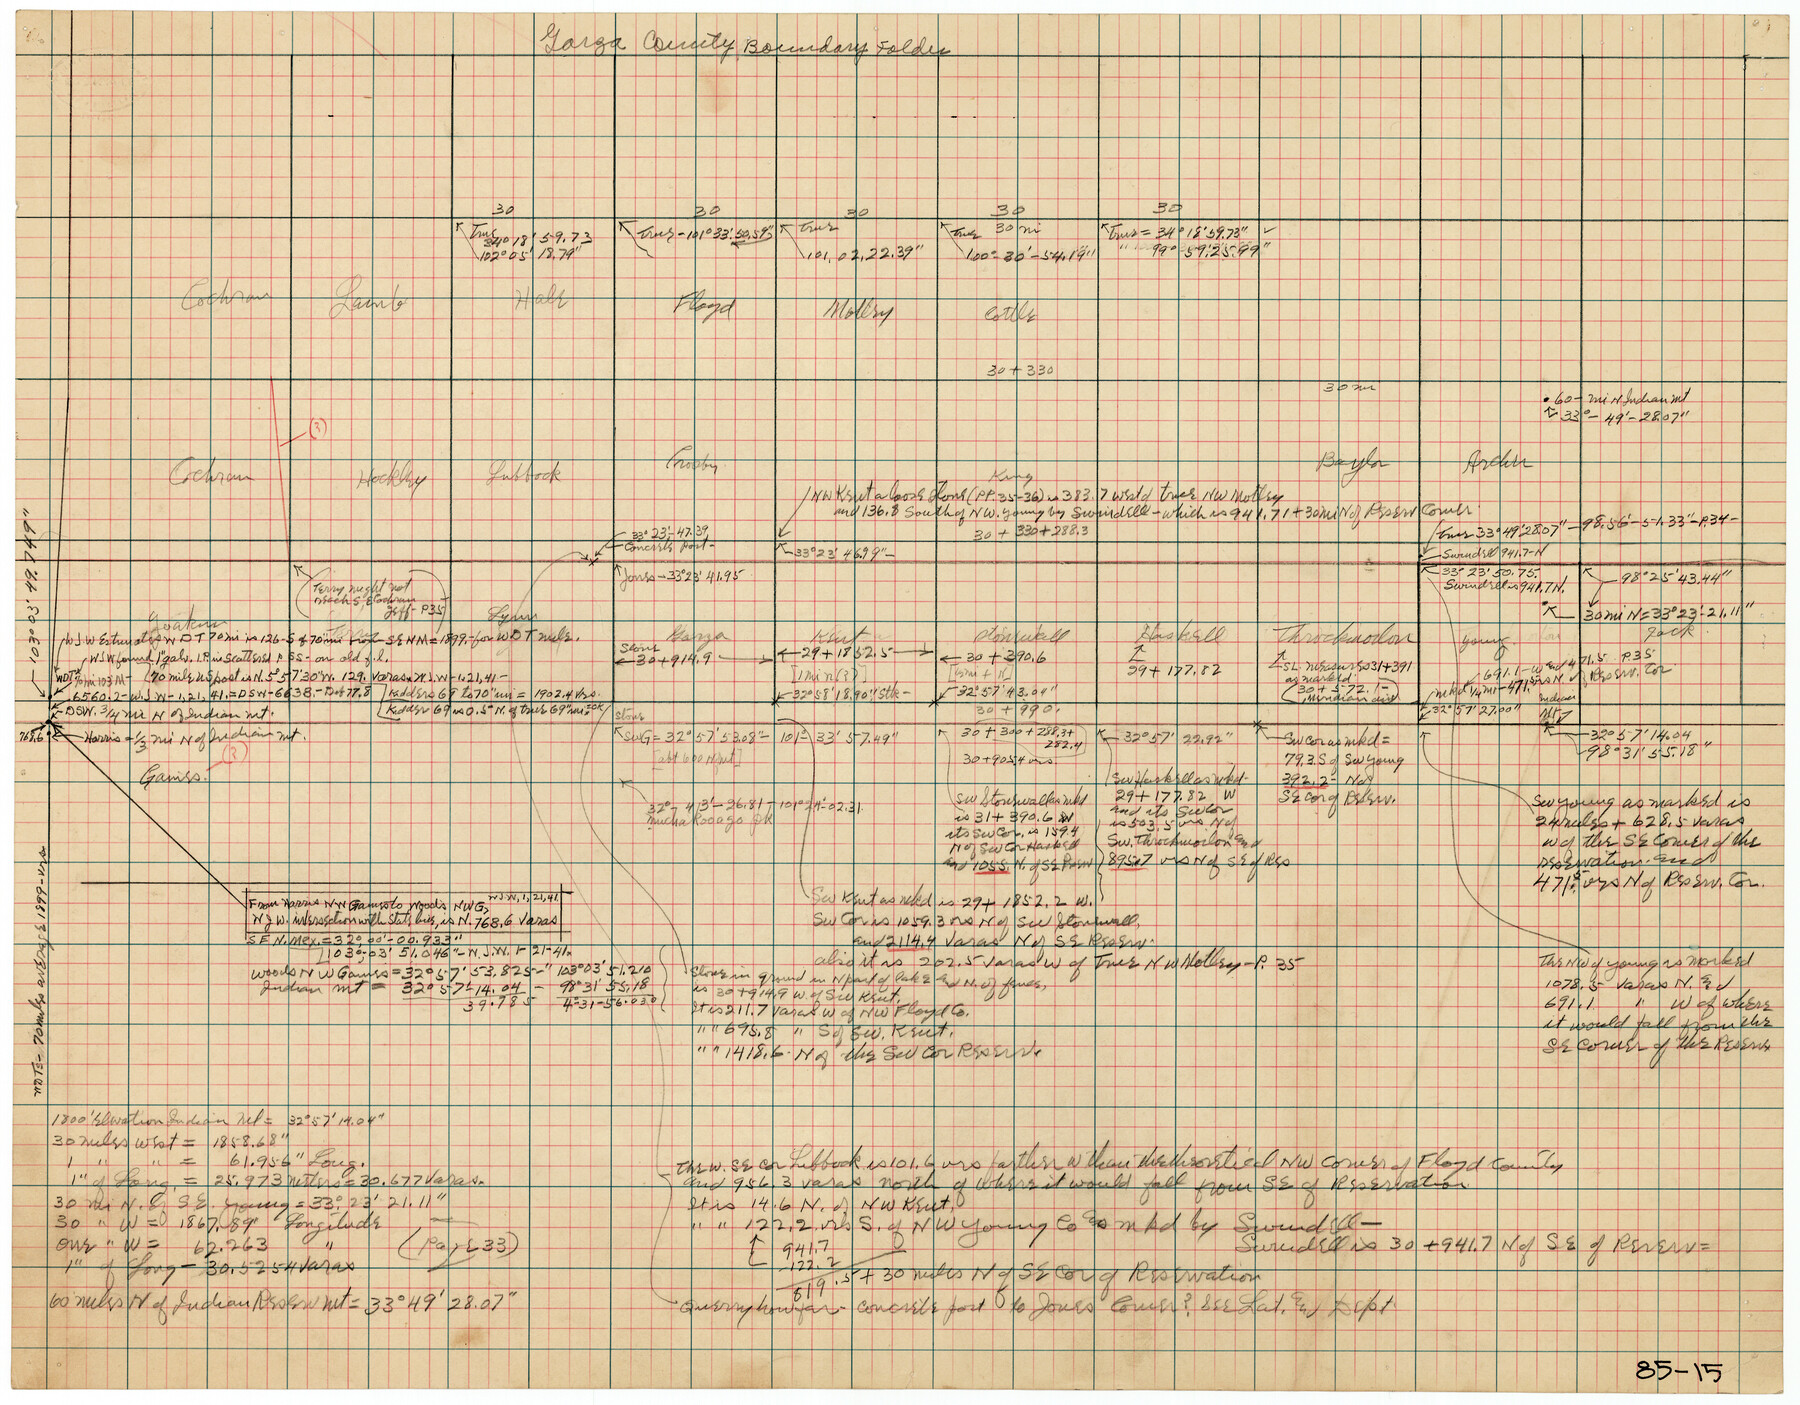 Garza County Boundary Folder
30 30 30 30 30
True
34° 18' 59.73
102° 05' 18.79"
True - 101° 33'. 50.59"
True
101, 02, 22.39"
True 30 mi
100° - 30' - 54.19"
True = 34° 18' 59.73"
" 99° 59' 25.99"
Cochran Lamb Hale Floyd Motley Cottle
30 + 330
30 mi
60 - mi N Indian Mt
33° - 49' - 28.07"
Cochran Hockley Lubbock Crosby King Baylor Archer
(3)
NW Kent a loose stone (PP. 35-36) is 383.7 west of true NW Motley
and 136.8 South of N.W. Young by Swindell - which is 941.71 + 30 mi N of Reserv Corner
30 + 330 + 288.3
33° 23' - 47.39
Concrete Post -
33° 23' 46.99" -
Jones - 33° 23' 41.95
True 33° 49' 28.07" - 98.56' - 51.33" - P.34 -
Swindell 941.7 - N
33° 23' 50.75.
Swindell is 941.7 N.
98° 25' 43.44"
30 mi N = 33° 23' - 21.11"
Terry might not
reach S.E. Cochran
Jeff - P35
103° 03' 49.749"
Yoakum Lynn Garza Kent Stonewall Haskell Throckmorton Young Jack
WJW Estimates W D T 70 mi is 126 - S of 70 mi Post - SE NM = 1899. - for W D T mile.
WJW found 1" galv. I.P. in scattered P SS - on old f.l.
70 mile N S post is N. 5° 57' 30" W. 129. varas. W.J.W - 1, 21, 41 -
6560.2 - W.J.W - 1, 21, 41. = DSW - 6638. - Diff 77.8
Kidder 69 to 70" mi = 1902.4 vrs.
Kidder 69 is 0.5" N. of true 69" mi = OK
DSW. 3/4 mi N of Indian Mt.
768.6
Harris - 1/3 mi N of Indian Mt.
Gaines.
(3)
Stone
30 + 914.9
29 + 1852.5
[1 min (3)]
32° 58' 18.90" Stk -
30 + 390.6
32° 57' 43.04"
30 + 990.
29 + 177.82
SL measures 31 + 391
as marked
30 + 572. / -
Meridian dist
691.1 - W and 471.5 P.35
32° 57' 27.00"
Indian
Mt
Stone
SWG = 32° 57' 53.08" - 101° 33' 57.49"
30 + 300 + 288.3 +
282.4
30 + 905.4 vrs.
32° 57' 22.92"
SW Cor as mkd =
79.3 S of SW Young
392.2 - N of
SE Cor of Reserv.
32° 57' 14.04
98° 31' 55.18"
32° - 43' - 26.81 - 101° 24' - 02.31
Mucha Kooago Pk
SW Stonewall as mkd
is 31 + 390.6 W
its SW Cor. is 159.4
N of SW Cor Haskell
and 1055. N. of SE Reserv
SW Haskell as mkd -
29 + 177.82 W
and its SW Cor
is 503.5 vrs N of
SW. Throckmorton and
895.7 vrs N of SE of Res
SW Young as marked is
24 miles + 628.5 varas
W of the SE Corner of the
Reservation. and
471.5 vrs N of Reserv. Cor.
NOTE = 70 miles average 1899 - vrs.
From Harris NW Gaines to Woods NWG, W.J.W, 1, 21, 41
N.J.W. intersection with State line, is N. 768.6 varas
S E N. Mex. = 32°, 00' - 00.933"
103°, 03' 51.046" - N.J.W. 1 - 21 - 41.
Woods N W Gaines = 32° 57' 53.825 - " 103° 03' 51.210
Indian Mt = 32° 57' 14.04 - 98° 31' 55.18
39.785 4° - 31 - 56.030
SW Kent as mkd is 29 + 1852.2 W.
SW Cor is 1059.3 vrs N of SW Stonewall,
and 2114.4 varas N of SE Reserv.
also it is 202.5 varas W of True N W Motley - P. 35
Stone in ground in N part of lake and N. of fence,
is 30 + 914.9 W. of SW Kent,
It is 211.7 varas W of NW Floyd Co.
" " 695.8 " S of SW. Kent.
" " 1418.6 - N of the SW Cor Reserv.
The NW of Young is marked
1078.5 varas N. and
691.1 " W of where
it would fall from the
SE Corner of the Reserv.
1800' Elevation Indian Mt = 32° 57' 14.04"
30 miles West = 1858.68"
1 " " = 61.956" Long.
1" of Long. = 25.973 meters = 30.677 varas.
30 mi N. of S.E. Young = 33°, 23' 21.11"
30 " W = 1867.89" Longitude
One " W = 62.263 " (Page 33)
1" of Long - 30.5254 varas
60 miles N of Indian Reserv Mt = 33° 49' 28.07"
The W. SE Cor Lubbock is 101.6 vrs farther W than the theoretical NW Corner of Floyd County
and 956.3 varas north of where it would fall from SE of Reservation
It is 14.6 N. of NW Kent,
" " 122.2 vrs S. of N W Young Co as mkd by Swindell -
Swindell is 30 + 941.7 N of S E of Reserv =
941.7
122.2
819.5 + 30 miles N of SE Cor of Reservation
Query how far - concrete post to Jones Corner? See Lat. and Dept
85-15